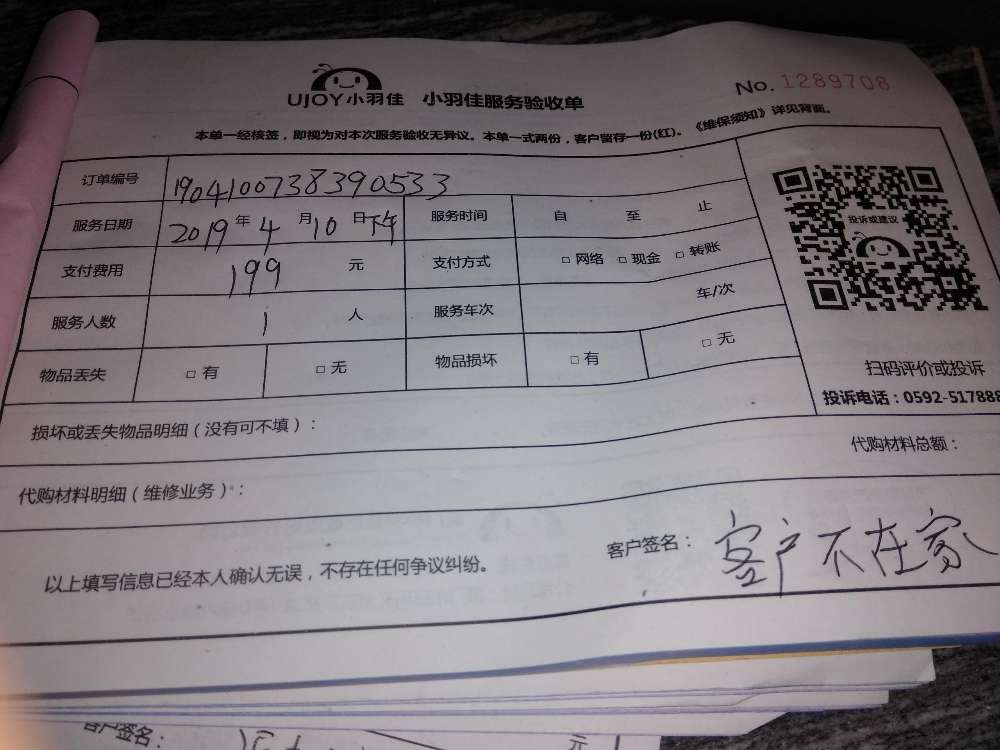 UJOY小羽佳 小羽佳服务验收单 No. 1289708
本单一经核签，即视为对本次服务验收无异议。本单一式两份，客户留存一份(红)。《维保须知》详见背面。
订单编号 1904100738390533
服务日期 2019年4月10日下午 服务时间 自 至 止
支付费用 199 元 支付方式 □ 网络 □ 现金 □ 转账
服务人数 1 人 服务车次 车/次
物品丢失 □ 有 □ 无 物品损坏 □ 有 □ 无
投诉或建议
扫码评价或投诉
投诉电话：0592-517888
损坏或丢失物品明细（没有可不填）：
代购材料总额：
代购材料明细（维修业务）：
以上填写信息已经本人确认无误，不存在任何争议纠纷。 客户签名： 客户不在家
客户签名： 元